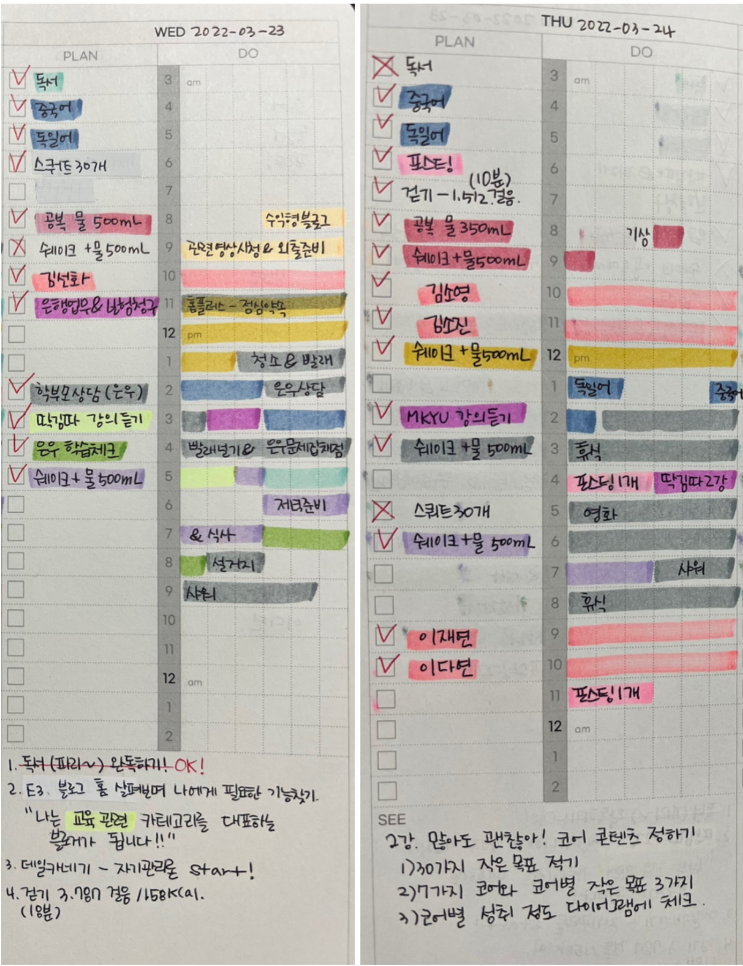 WED 2022-03-23
PLAN
DO
독서
3 am
중국어
4
독일어
5
스쿼트 30개
6
7
공복 물 500mL
8 수익형블로그
쉐이크 + 물 500mL
9 관련영상시청 & 외출준비
김선화
10
은행업무 & 보험청구
11 홈플러스 - 점심약속
12 pm
1 청소 & 빨래
학부모상담 (은우)
2 은우상담
딱김따 강의듣기
3
은우 학습체크
4 빨래널기 & 은우문제집채점
쉐이크 + 물 500mL
5
6 저녁준비
7 & 식사
8 설거지
9 샤워
10
11
12 am
1
2
1. 독서 (파리~) 완독하기! OK!
2. E3. 블로그 홈 살펴보며 나에게 필요한 기능찾기.
"나는 교육 관련 카테고리를 대표하는
블로거가 됩니다!!"
3. 데일카네기 - 자기관리론 start!
4. 걷기 3.787 걸음 /158Kcal.
(18분)
THU 2022-03-24
PLAN
DO
독서
3 am
중국어
4
독일어
5
포스팅
6
(10분)
걷기 - 1.512 걸음.
7
공복 물 350mL
8 기상
쉐이크 + 물 500mL
9
김소영
10
김소진
11
쉐이크 + 물 500mL
12 pm
1 독일어 중국어
MKYU 강의듣기
2
쉐이크 + 물 500mL
3 휴식
4 포스팅 1개 딱김따 2강
스쿼트 30개
5 영화
쉐이크 + 물 500mL
6
7 샤워
8 휴식
이재연
9
이다연
10
11 포스팅 1개
12 am
1
2
SEE
2강. 많아도 괜찮아! 코어 콘텐츠 정하기
1) 30가지 작은 목표 적기
2) 7가지 코어와 코어별 작은 목표 3가지
3) 코어별 성취 정도 다이어그램에 체크.